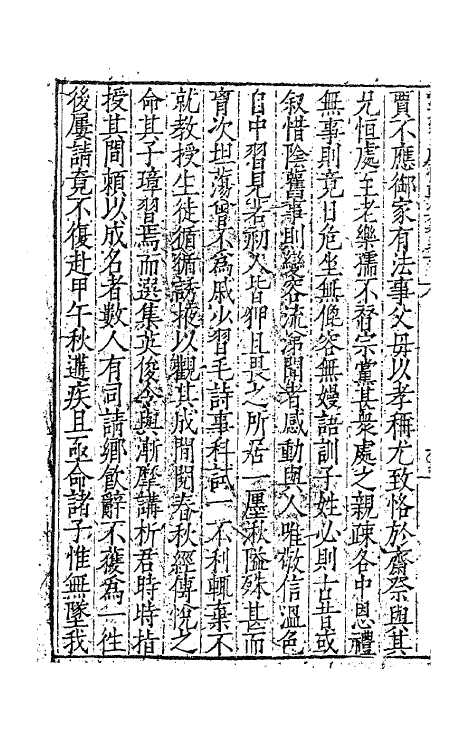 賈不應御家有法事父毋以孝稱尤致恪於齋祭與其
尤恒處主老樂孺不瘠宗黨甚衆處之親疎各中恩禮
無事則竟日危坐無傾容無嫚語訓子姓必則古昔或
叙惜陰舊事則變容流涕聞者感動與人唯敬信溫色
自中習見若初入皆狎且畏之所居一廛湫隘殊甚而
資次坦蕩曾不爲戚少習毛詩事科試一不利輒棄不
就教授生徒循循誘掖以觀其成間閱春秋經傳悅之
命其子璋習焉而選集英俊令與漸摩講析君時時指
授其間頼以成名者數人有司請鄉飲辭不獲爲一往
後屢請竟不復赴甲午秋遘疾且亟命諸子惟無墜我